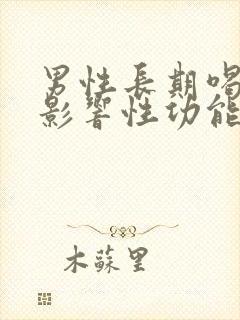 男性長期喝
影響性功能
木蘇里